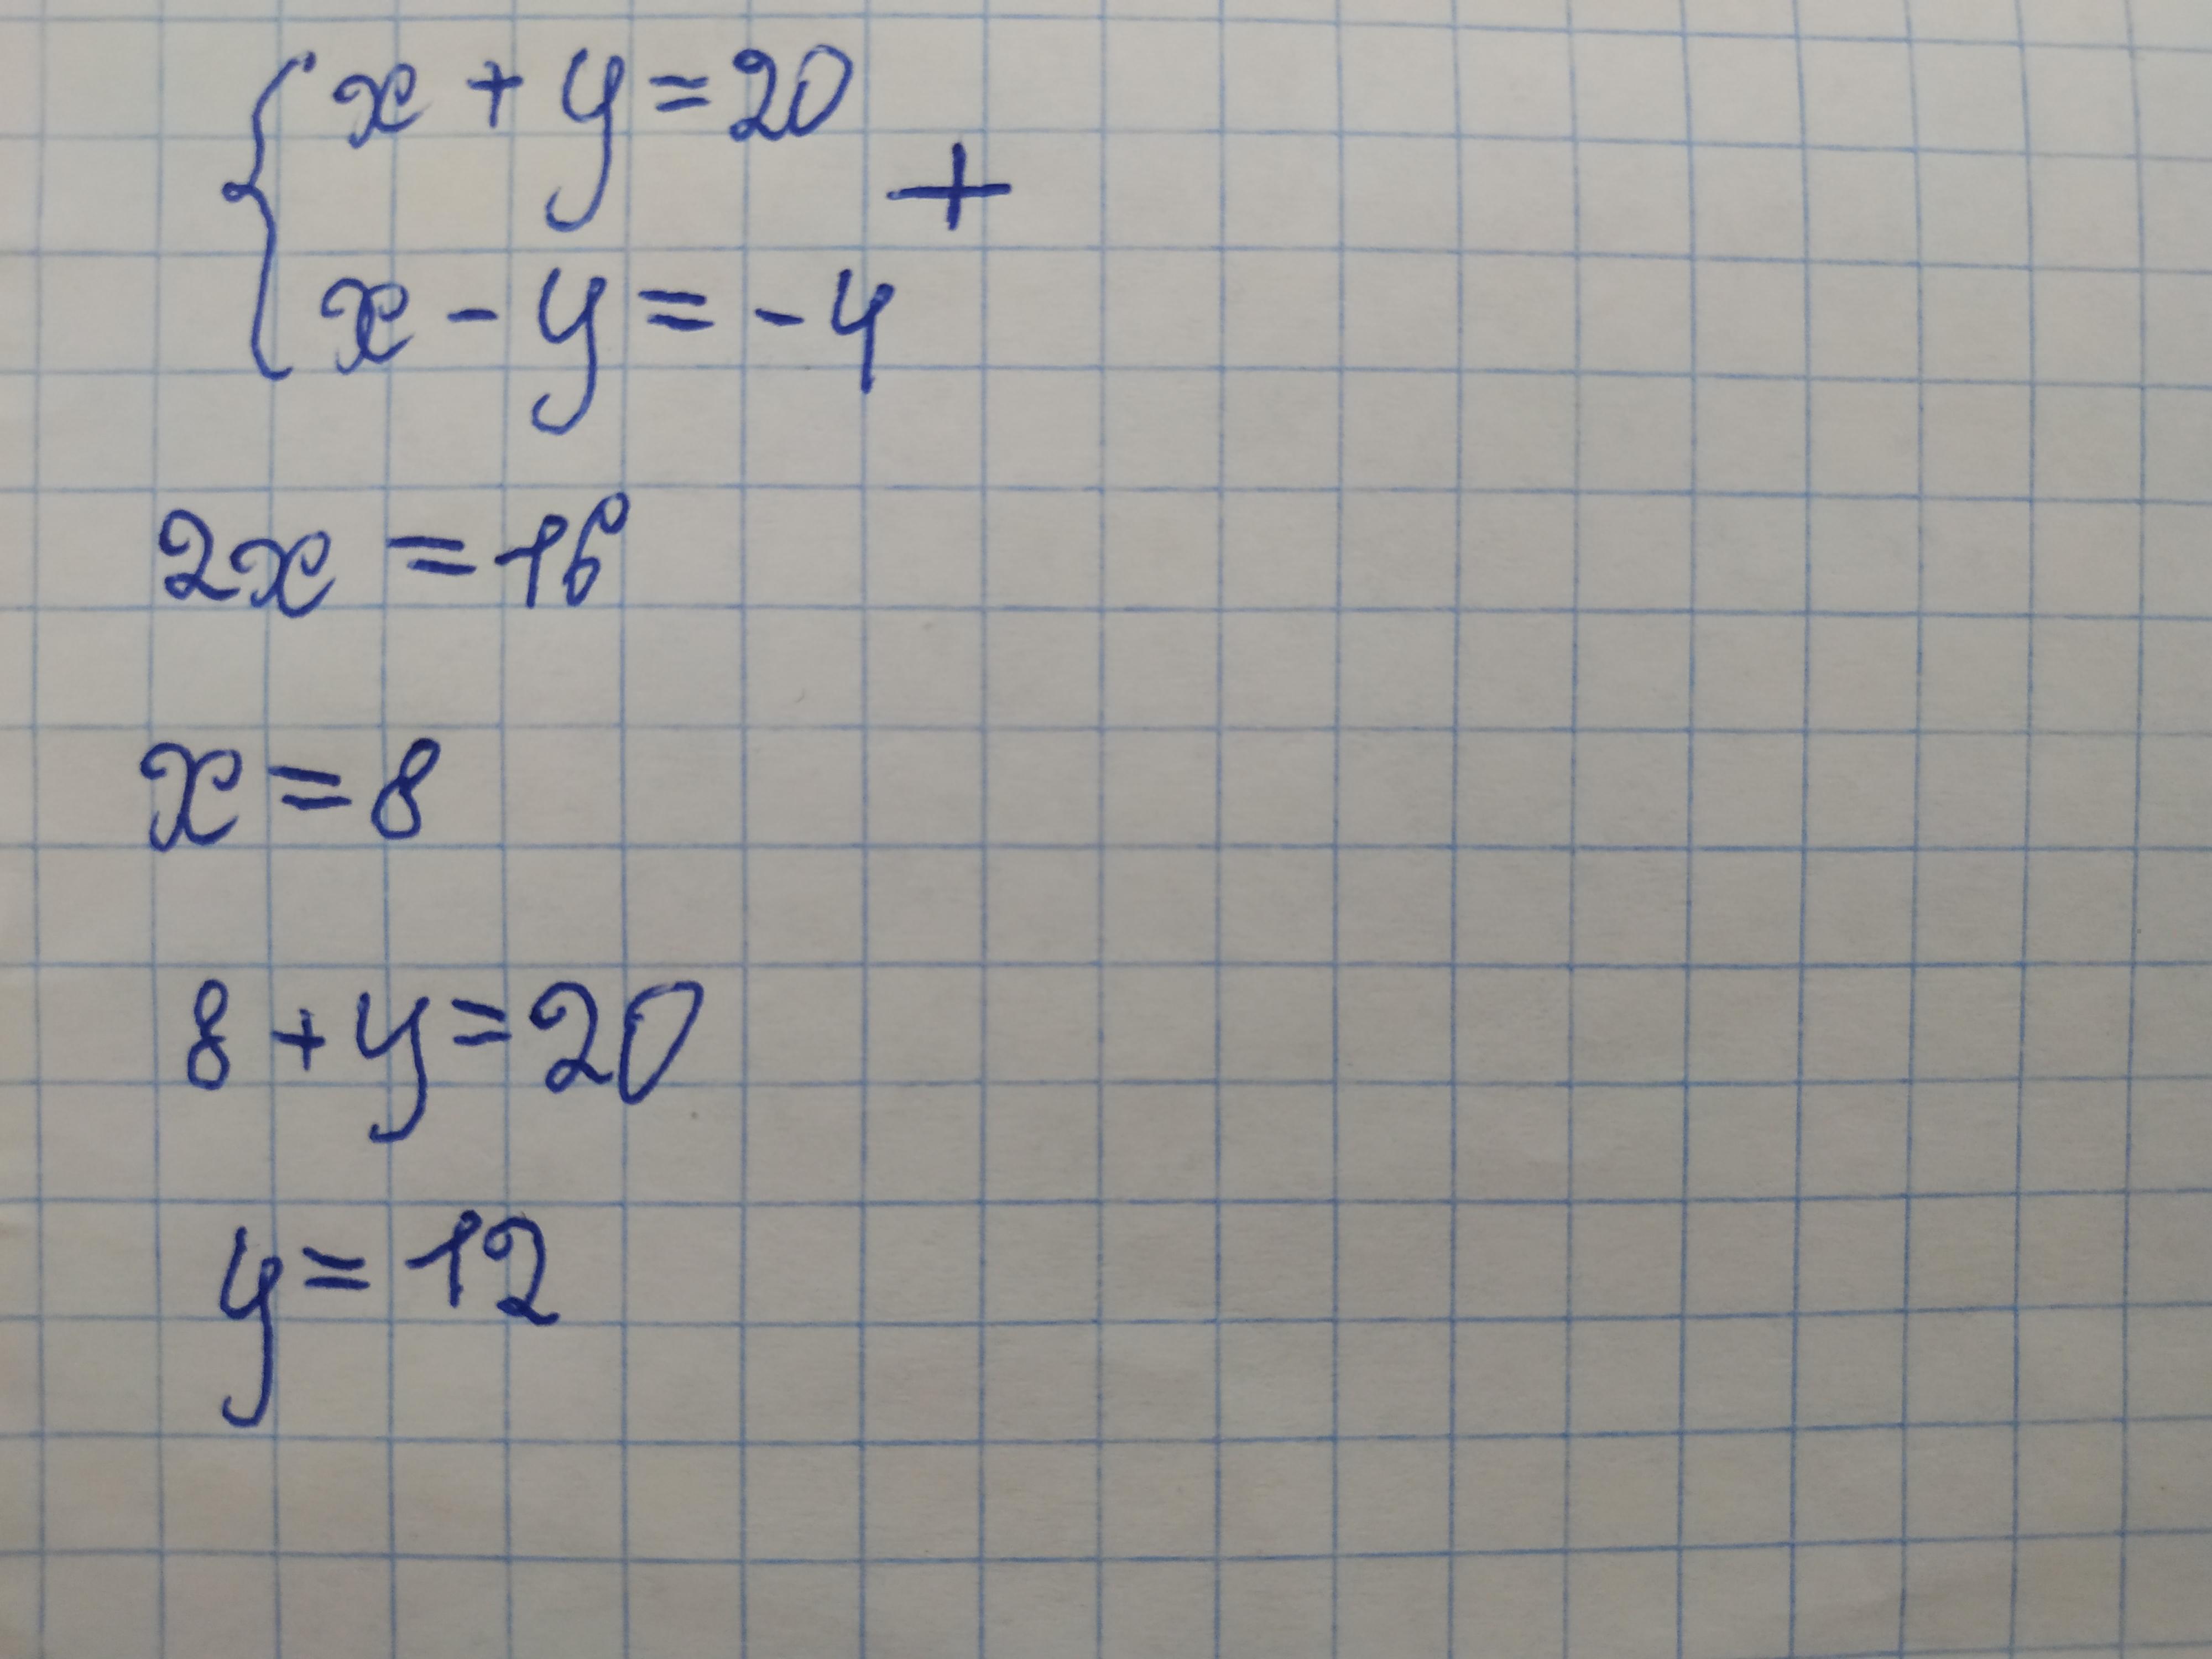 x + y = 20
+
x - y = -4
2x = 16
x = 8
8 + y = 20
y = 12